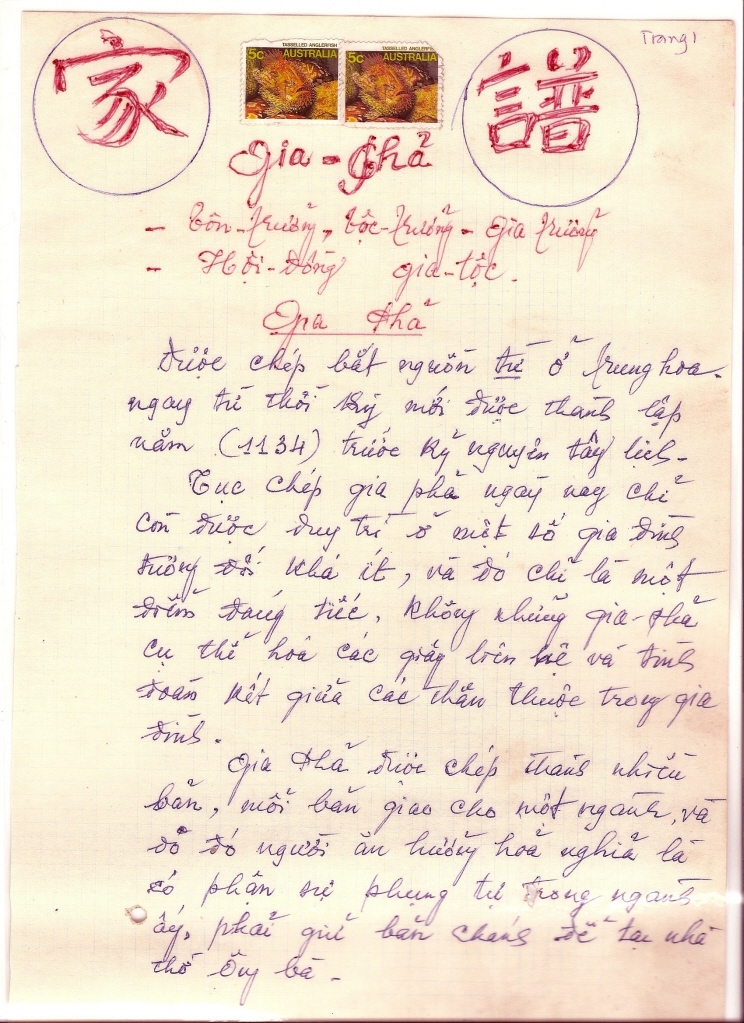 Trang 1
家
譜
TASSELLED ANGLERFISH
5c AUSTRALIA
TASSELLED ANGLERFISH
5c AUSTRALIA
Gia-phả
- Tôn-trưởng, tộc-trưởng - Gia trưởng
- Hội-đồng gia-tộc.
Gia phả
Được chép bắt nguồn từ ở trung hoa.
ngay từ thời kỳ mới được thành lập
năm (1134) trước kỷ nguyên tây lịch -
Tục chép gia phả ngày nay chỉ
còn được duy trì ở một số gia đình
tương đối khá ít, và đó chỉ là một
điểm đáng tiếc, không những gia-phả
cụ thể hoá các giây liên hệ và tình
đoàn kết giữa các thân thuộc trong gia
đình.
Gia phả được chép thành nhiều
bản, mỗi bản giao cho một ngành, và
do đó người ăn hưởng hoả nghĩa là
có phận sự phụng tự trong ngành
ấy, phải giữ bản chánh để tại nhà
thờ Ông bà -